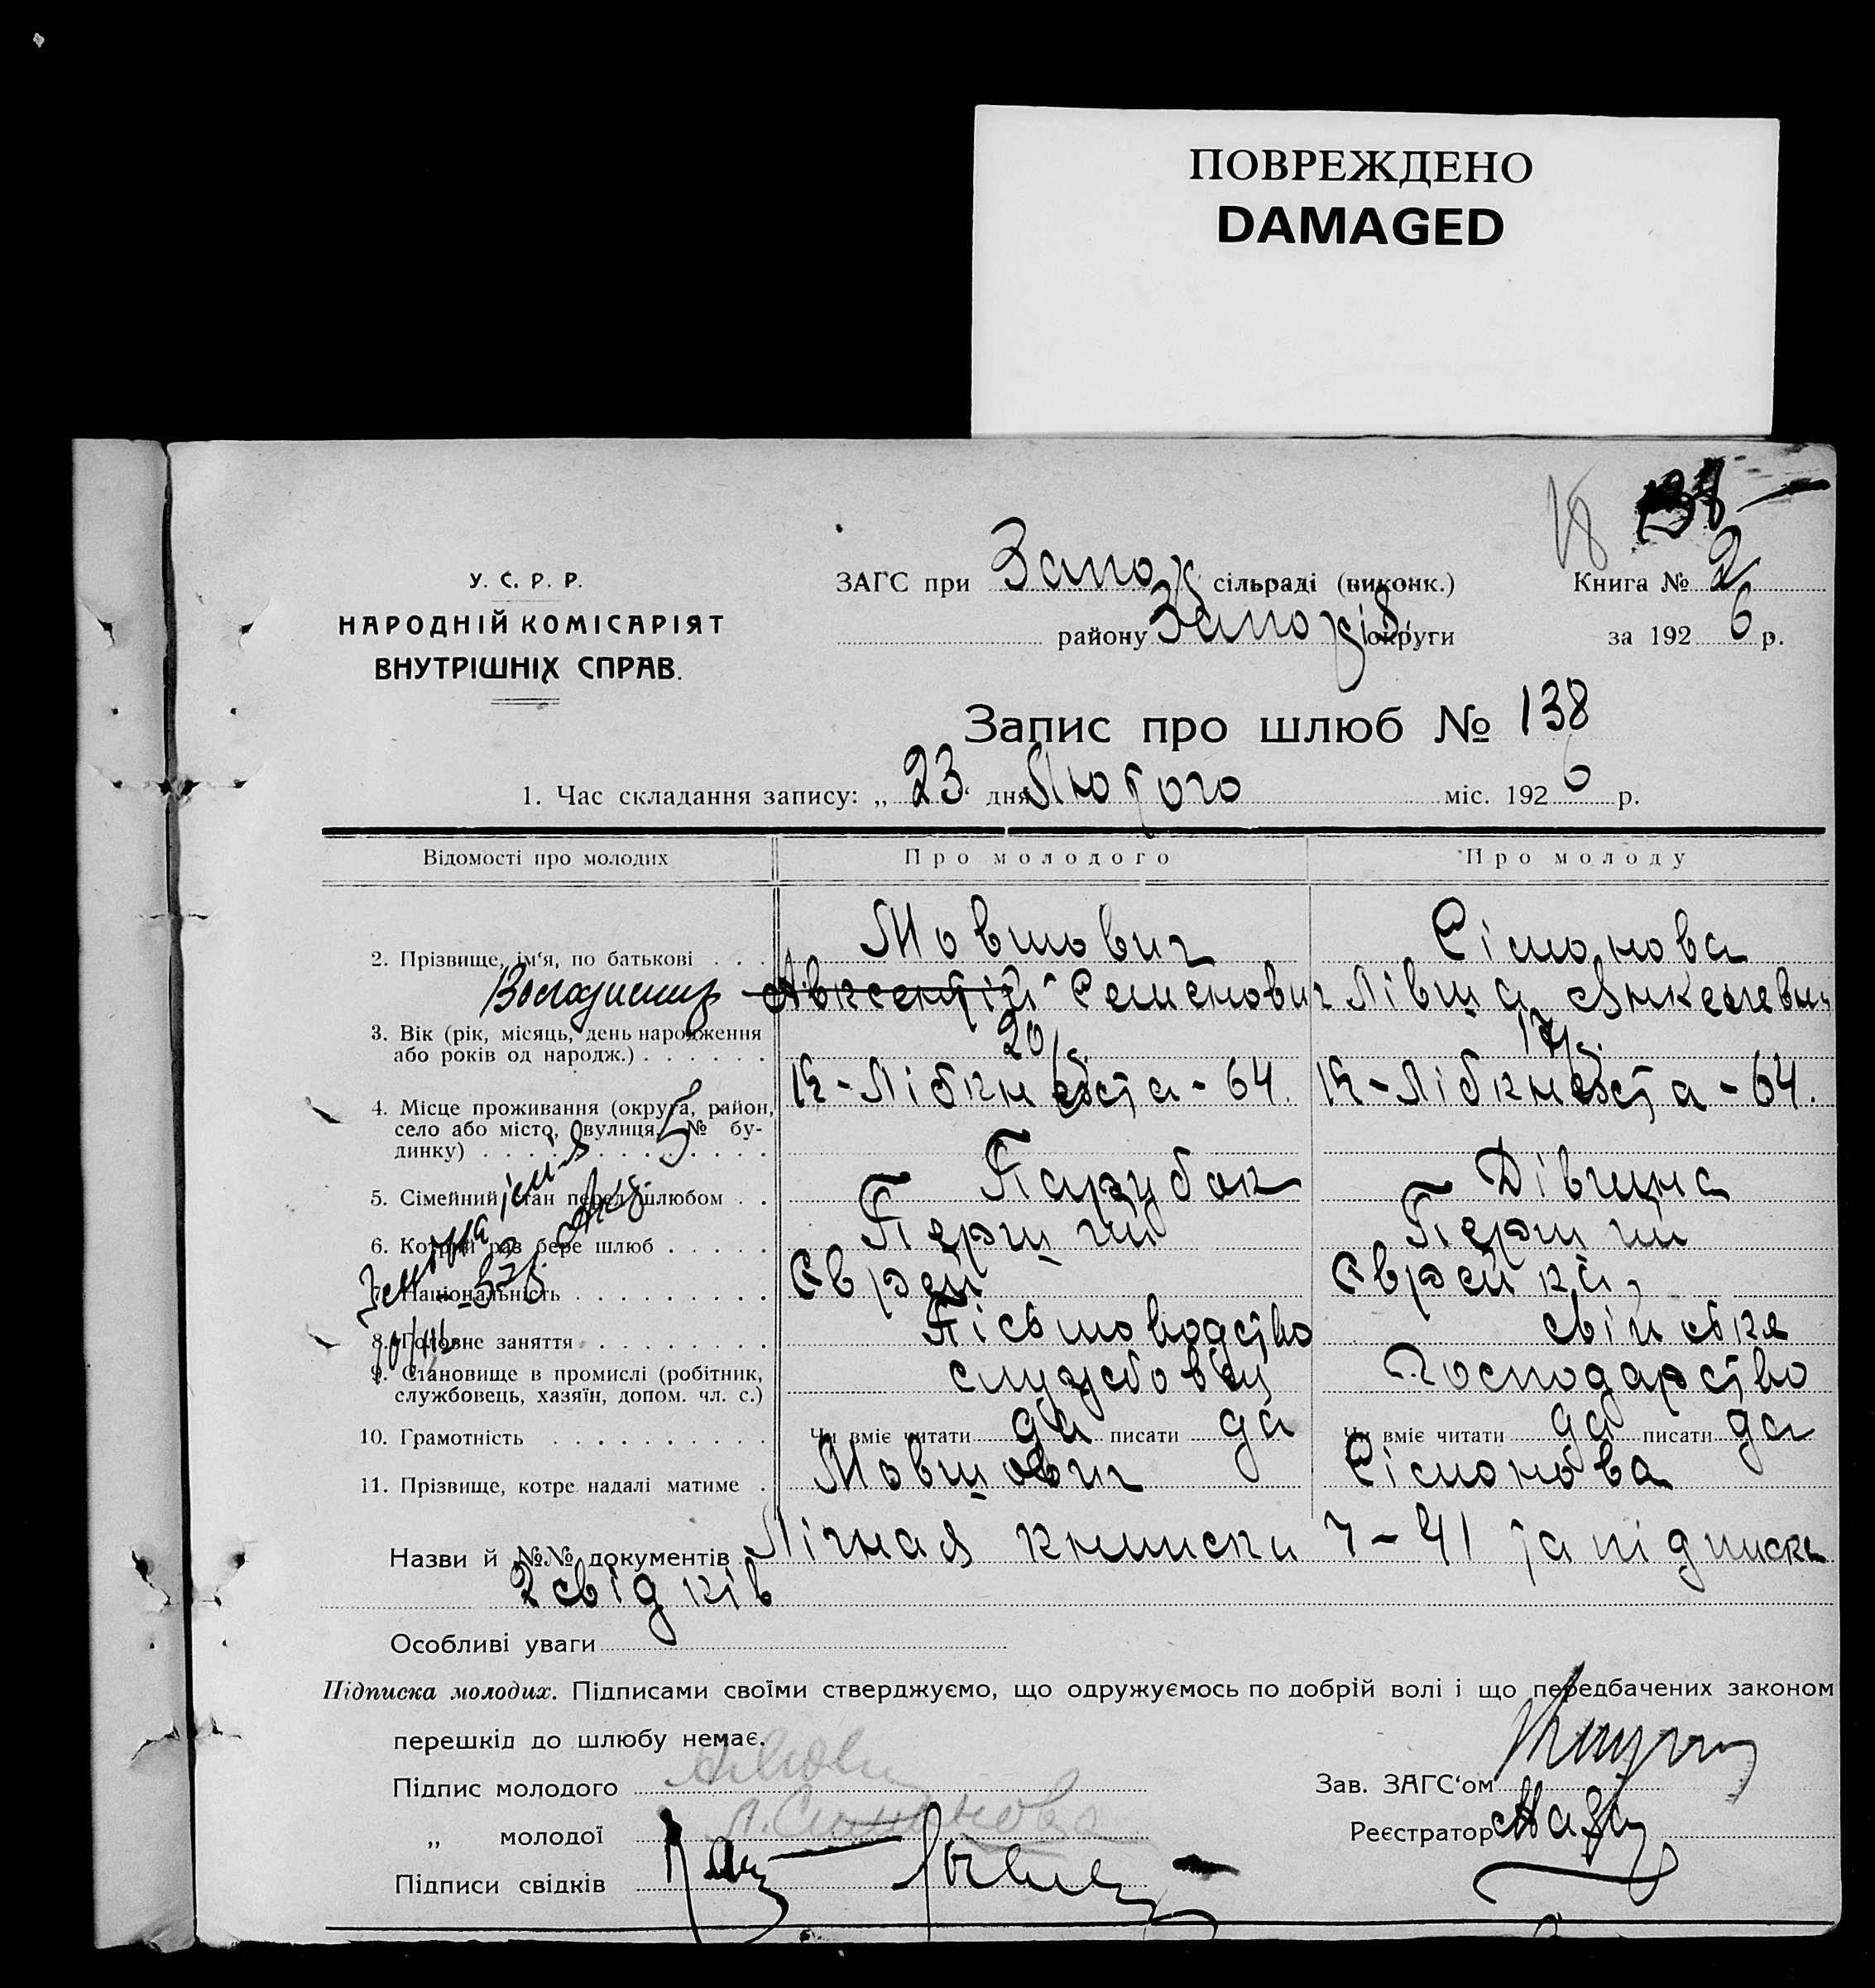 ПОВРЕЖДЕНО
DAMAGED
18 138
У. С. Р. Р.
НАРОДНІЙ КОМІСАРІЯТ
ВНУТРІШНІХ СПРАВ.
ЗАГС при Запоріз сільраді (виконк.)
району Запоріз. округи
Книга № 2
за 1926 р.
Запис про шлюб № 138
1. Час складання запису: „23“ дня Лютого міс. 1926 р.
Відомості про молодих
Про молодого
Про молоду
2. Прізвище, ім‘я, по батькові . . .
Мовшович
Сімонова
Авксентій Семенович
Лівша
3. Вік (рік, місяць, день народження
або років од народж.) . . . . . .
20
17
4. Місце проживання (округа, район,
село або місто, вулиця, № бу-
динку) . . . . . . . . . . . . .
К-Лібкнехта-64.
К-Лібкнехта-64.
5. Сімейний стан перед шлюбом . .
Парубок
Дівчина
6. Котрий раз бере шлюб . . . . .
Перший
Перший
7. Національність . . . . . . . . .
Єврей
Єврейка
8. Головне заняття . . . . . . . .
Пісьмоводство
свійське
9. Становище в промислі (робітник,
службовець, хазяїн, допом. чл. с.)
службовец
Господарство
10. Грамотність . . . . . . . . . .
Чи вміє читати да писати да
Чи вміє читати да писати да
11. Прізвище, котре надалі матиме .
Мовшович
Сімонова
Назви й №№ документів Лічная книжка 7-41 та підписка
2 свідків
Особливі уваги
Підписка молодих. Підписами своїми стверджуємо, що одружуємось по добрій волі і що передбачених законом
перешкід до шлюбу немає.
Підпис молодого
Зав. ЗАГС‘ом
„ молодої Л. Симонова
Реєстратор
Підписи свідків